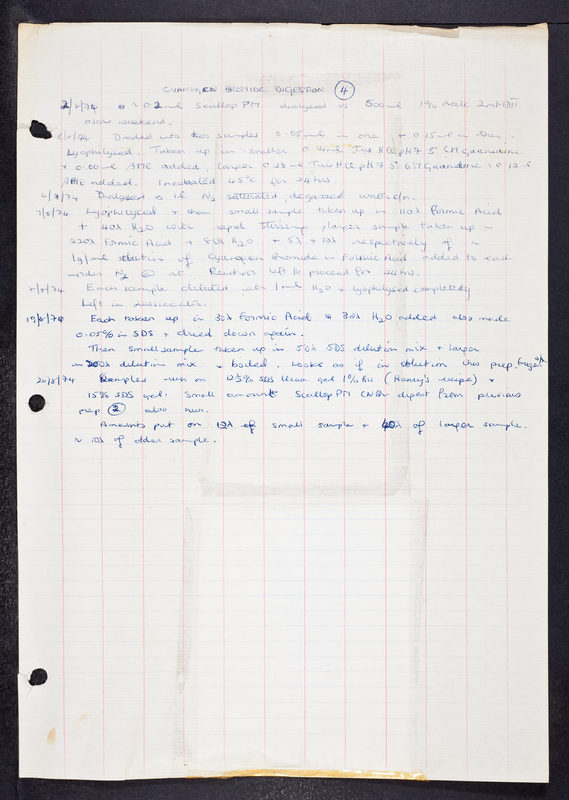 CYANOGEN BROMIDE DIGESTION 4
2/8/74 0.2ml Scallop PM dialysed vs 500ml 1% Acetic 2mM DTT
over weekend.
Divided into two samples 0.05ml in one, + 0.15ml in other.
Lyophilysed. Taken up in smaller 0.14ml Tris HCl pH 7.5 6M Guanidine
+ 0.06ml βME added, larger 0.28ml Tris HCl pH 7.5 6M Guanidine + 0.12ml
βME added. Incubated 45°C for 24hrs.
6/8/74 Dialysed vs 1L N2 saturated, degassed water o/n.
7/8/74 Lyophilysed + then small sample taken up in 110λ Formic Acid
+ 40λ H2O with rapid stirring, larger sample taken up in
220λ Formic Acid + 80λ H2O + 5λ + 10λ respectively of a
1g/ml solution of Cyanogen Bromide in Formic Acid added to each
under N2 @ rt. Reaction left to proceed for 24hrs.
8/8/74 Each sample diluted with 1ml H2O + lyophilysed completely
Left in dessiccator.
19/8/74 Each taken up in 30λ Formic Acid & 30λ H2O added also made
0.05% in SDS + dried down again.
Then small sample taken up in 50λ SDS dilution mix + larger
in 200λ dilution mix + boiled. Looks as if in solution this prep. Froze o/n.
20/8/74 Samples run on 12½% SDS Urea gel 1% Bis (Henry's recipe) +
15% SDS gel. Small amount Scallop PM CNBr digest from previous
prep 2 also run.
Amounts put on 12λ of small sample + 40λ of larger sample.
≈ 10λ of older sample.